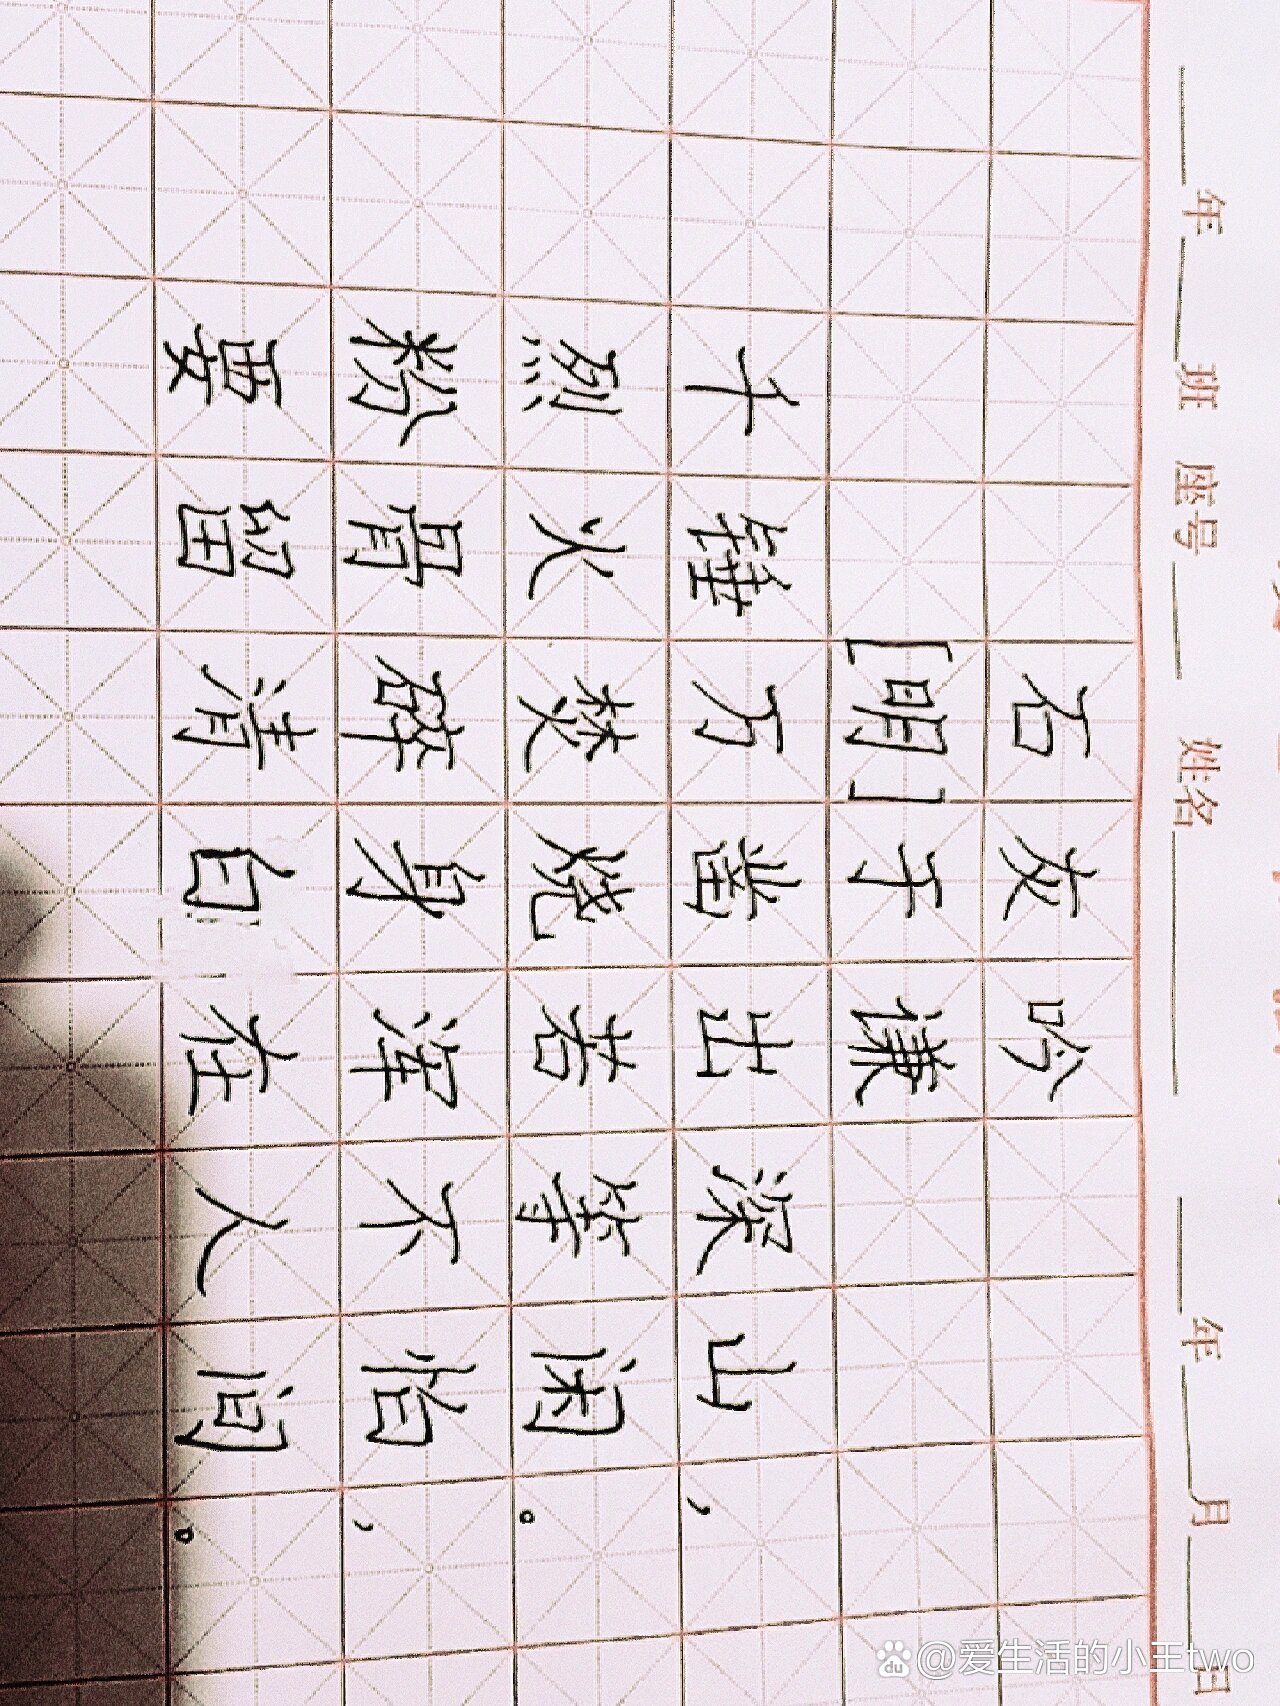 年 班 座号 姓名 年 月 日
石灰吟
[明]于谦
千锤万凿出深山，
烈火焚烧若等闲。
粉骨碎身浑不怕，
要留清白在人间。
du @爱生活的小王two